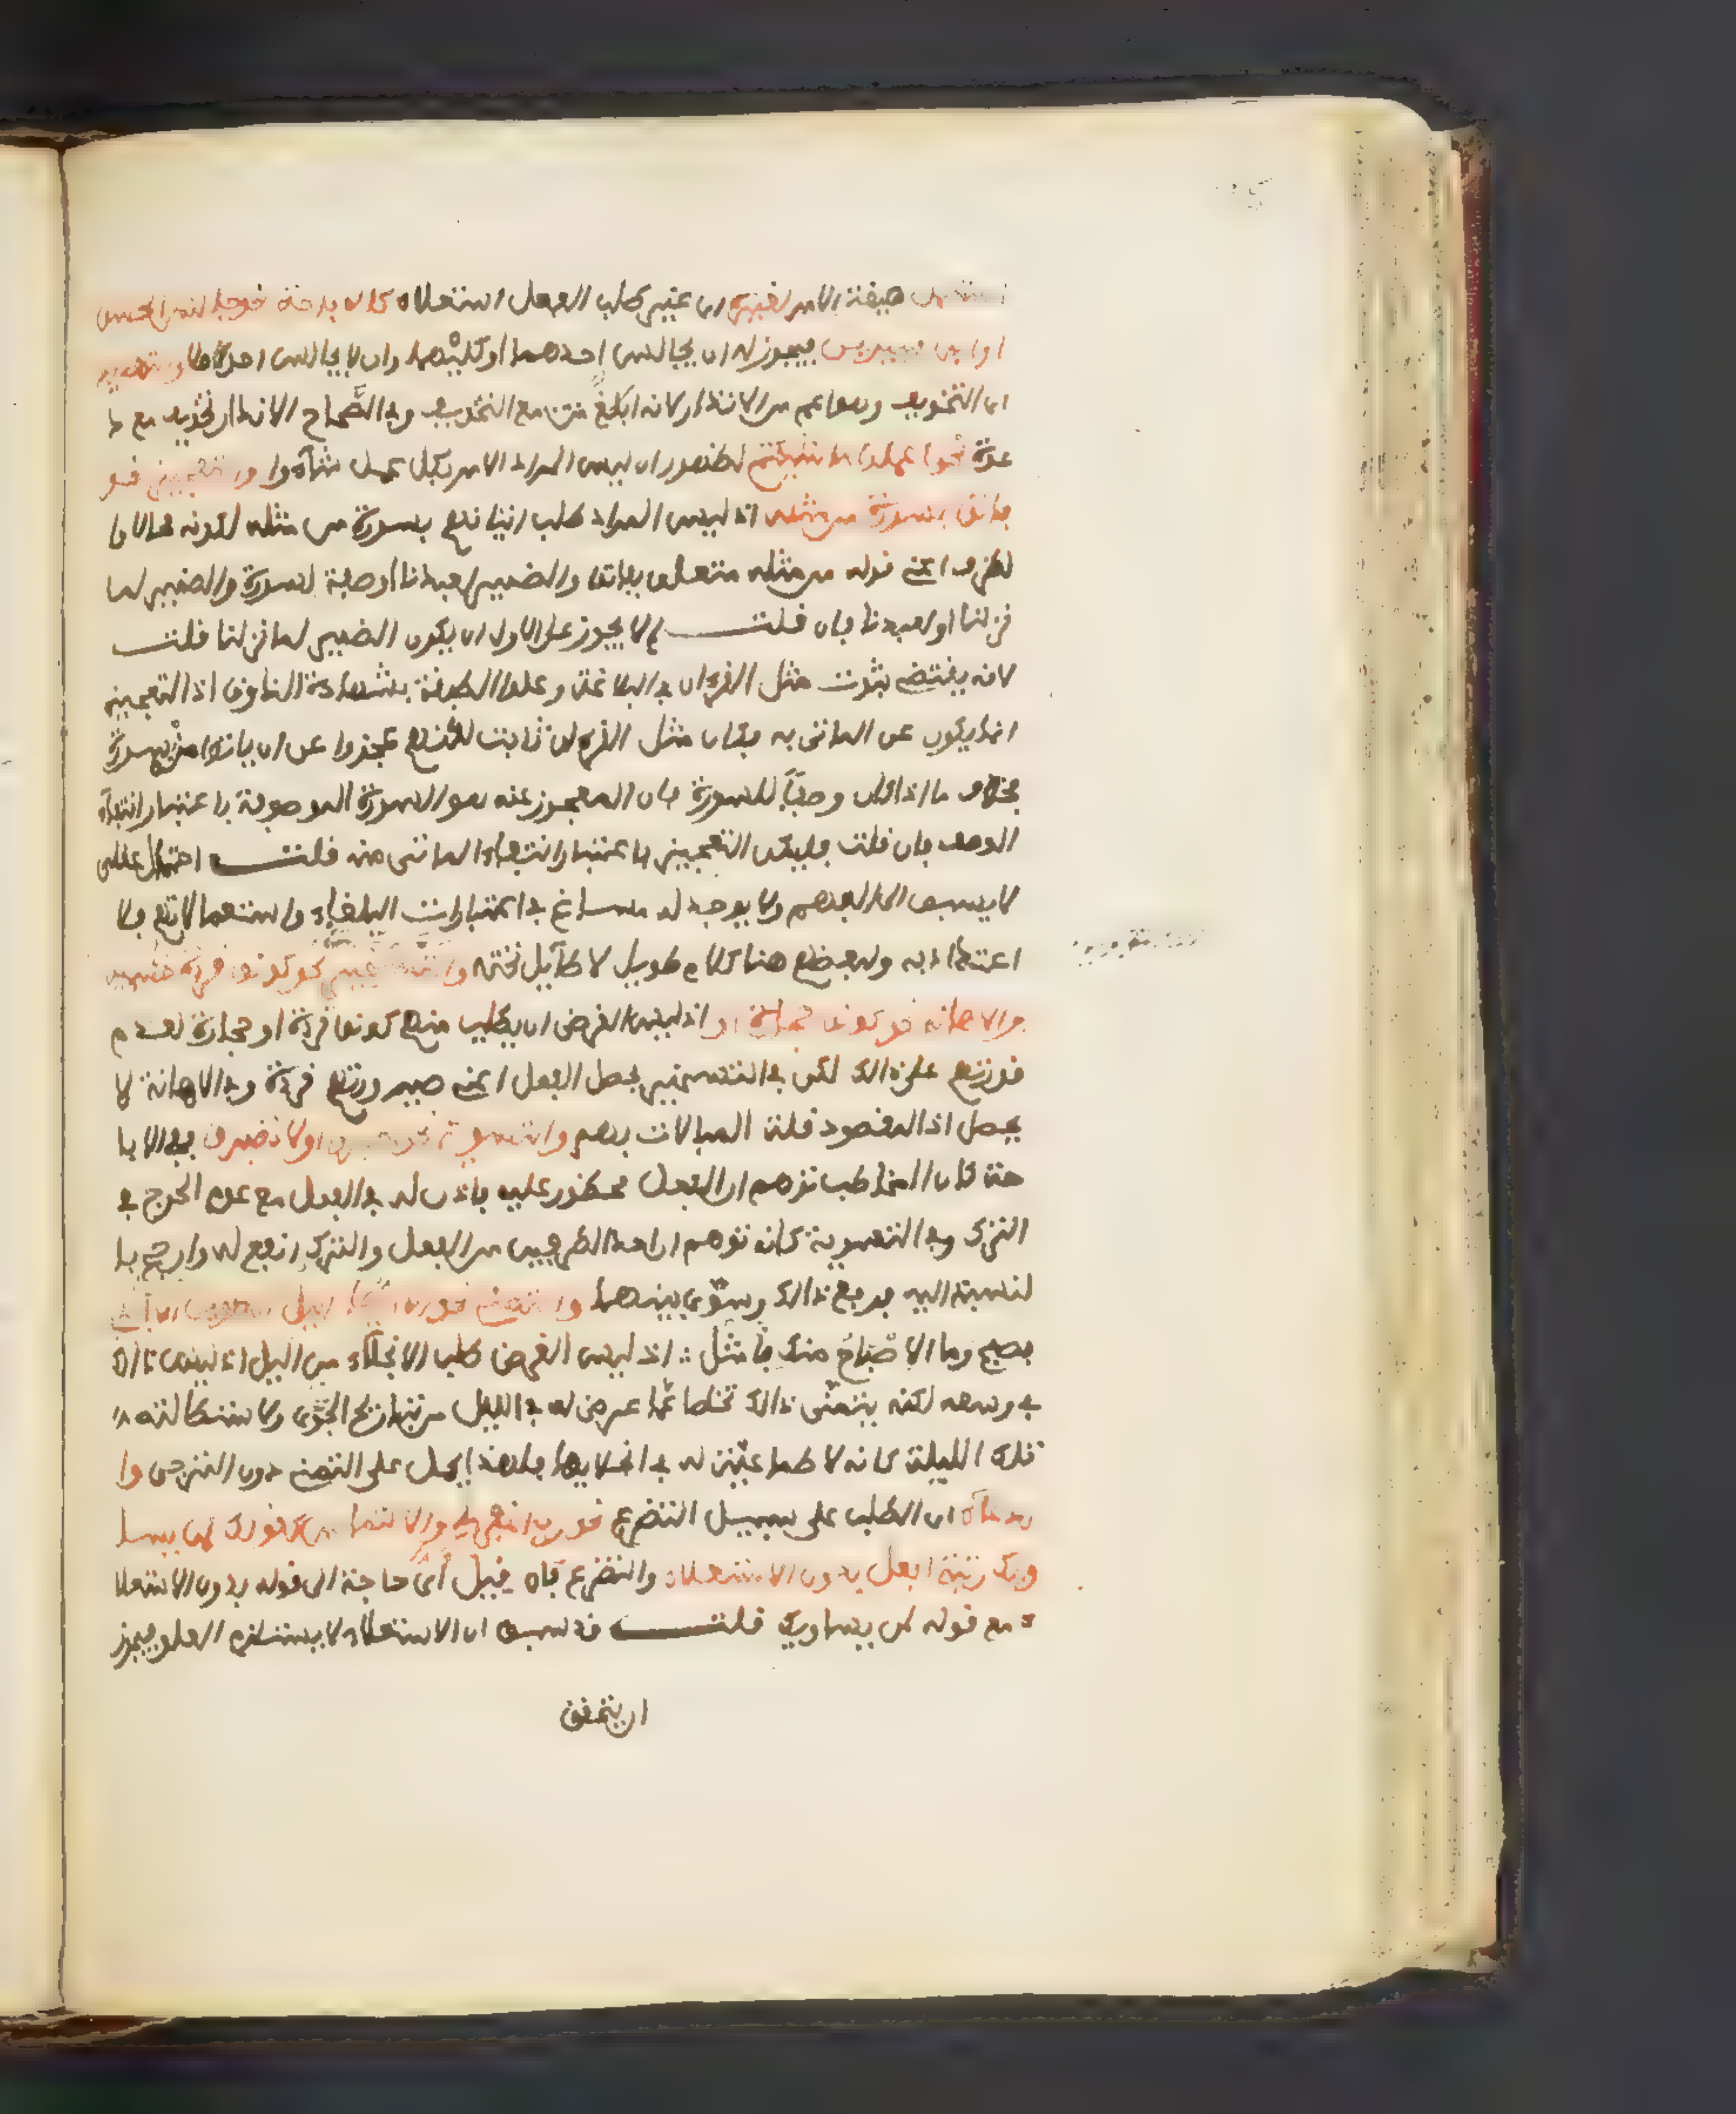 صيغة الامر لغيره اى غير طلب الفعل استعلاء كالاباحة نحو جالس الحسن
او ابن سيرين فيجوز له ان يجالس احدهما او كليهما وان لا يجالس احدا والتهديد
اى التخويف وهو اعم من الانذار لانه ابلاغ مع التخويف وفي الصحاح الانذار تخويف مع د
عوة نحو اعملوا ما شئتم لظهور ان ليس المراد الامر بكل عمل شاءوا والتعجيز نحو
فاتوا بسورة من مثله اذ ليس المراد طلب اتيانهم بسورة من مثله لكونه محالا وا
لظرف اعنى قوله من مثله متعلق بفاتوا والضمير لعبدنا او صفة لسورة والضمير لما
نزلنا او لعبدنا فان قلت لم لا يجوز على الاول ان يكون الضمير لما نزلنا قلت
لانه يقتضى ثبوت مثل القرءان في البلاغة وعلو الطبقة بشهادة الذوق اذ التعجيز
انما يكون عن الماتى به فكان مثل القرءان ثابت لكنهم عجزوا عن ان ياتوا منه بسورة
بخلاف ما اذا كان وصفا للسورة فان المعجوز عنه هو السورة الموصوفة باعتبار انتفاء
الوصف فان قلت فليكن التعجيز باعتبار انتفاء الماتى منه قلت احتمال عقلى
لا يسبق الى الفهم ولا يوجد له مساغ في اعتبارات البلغاء واستعمالاتهم فلا
اعتداد به ولبعضهم هنا كلام طويل لا طائل تحته والتسخير نحو كونوا قردة خاسئين
والاهانة نحو كونوا حجارة او اذ ليس الغرض ان يطلب منهم كونهم قردة او حجارة لعدم
قدرتهم على ذالك لكن في التسخير يحصل الفعل اعنى صيرورتهم قردة وفي الاهانة لا
يحصل اذ المقصود قلة المبالات بهم والتسوية نحو اصبروا او لا تصبروا ففى الابا
حة كان المخاطب توهم ان الفعل محظور عليه فاذن له في الفعل مع عدم الحرج في
الترك وفي التسوية كانه توهم ان احد الطرفين من الفعل والترك انفع له وارجح با
لنسبة اليه فرفع ذالك وسوى بينهما والتمنى نحو الا ايها الليل الطويل الا انجلى
بصبح وما الاصباح منك بامثل اذ ليس الغرض طلب الانجلاء من الليل اذ ليس ذالك
في وسعه لكنه يتمنى ذالك تخلصا عما عرض له في الليل من تباريح الجوى ولاستطالته
تلك الليلة كانه لا طماعية له في انجلائها فلهذا يحمل على التمنى دون الترجى وا
لدعاء اى الطلب على سبيل التضرع نحو رب اغفر لى والالتماس كقولك لمن يسا
ويك رتبة افعل بدون الاستعلاء والتضرع فان قيل اى حاجة الى قوله بدون الاستعلا
ء مع قوله لمن يساويك قلت قد سبق ان الاستعلاء لا يستلزم العلو فيجوز
ان يتحقق